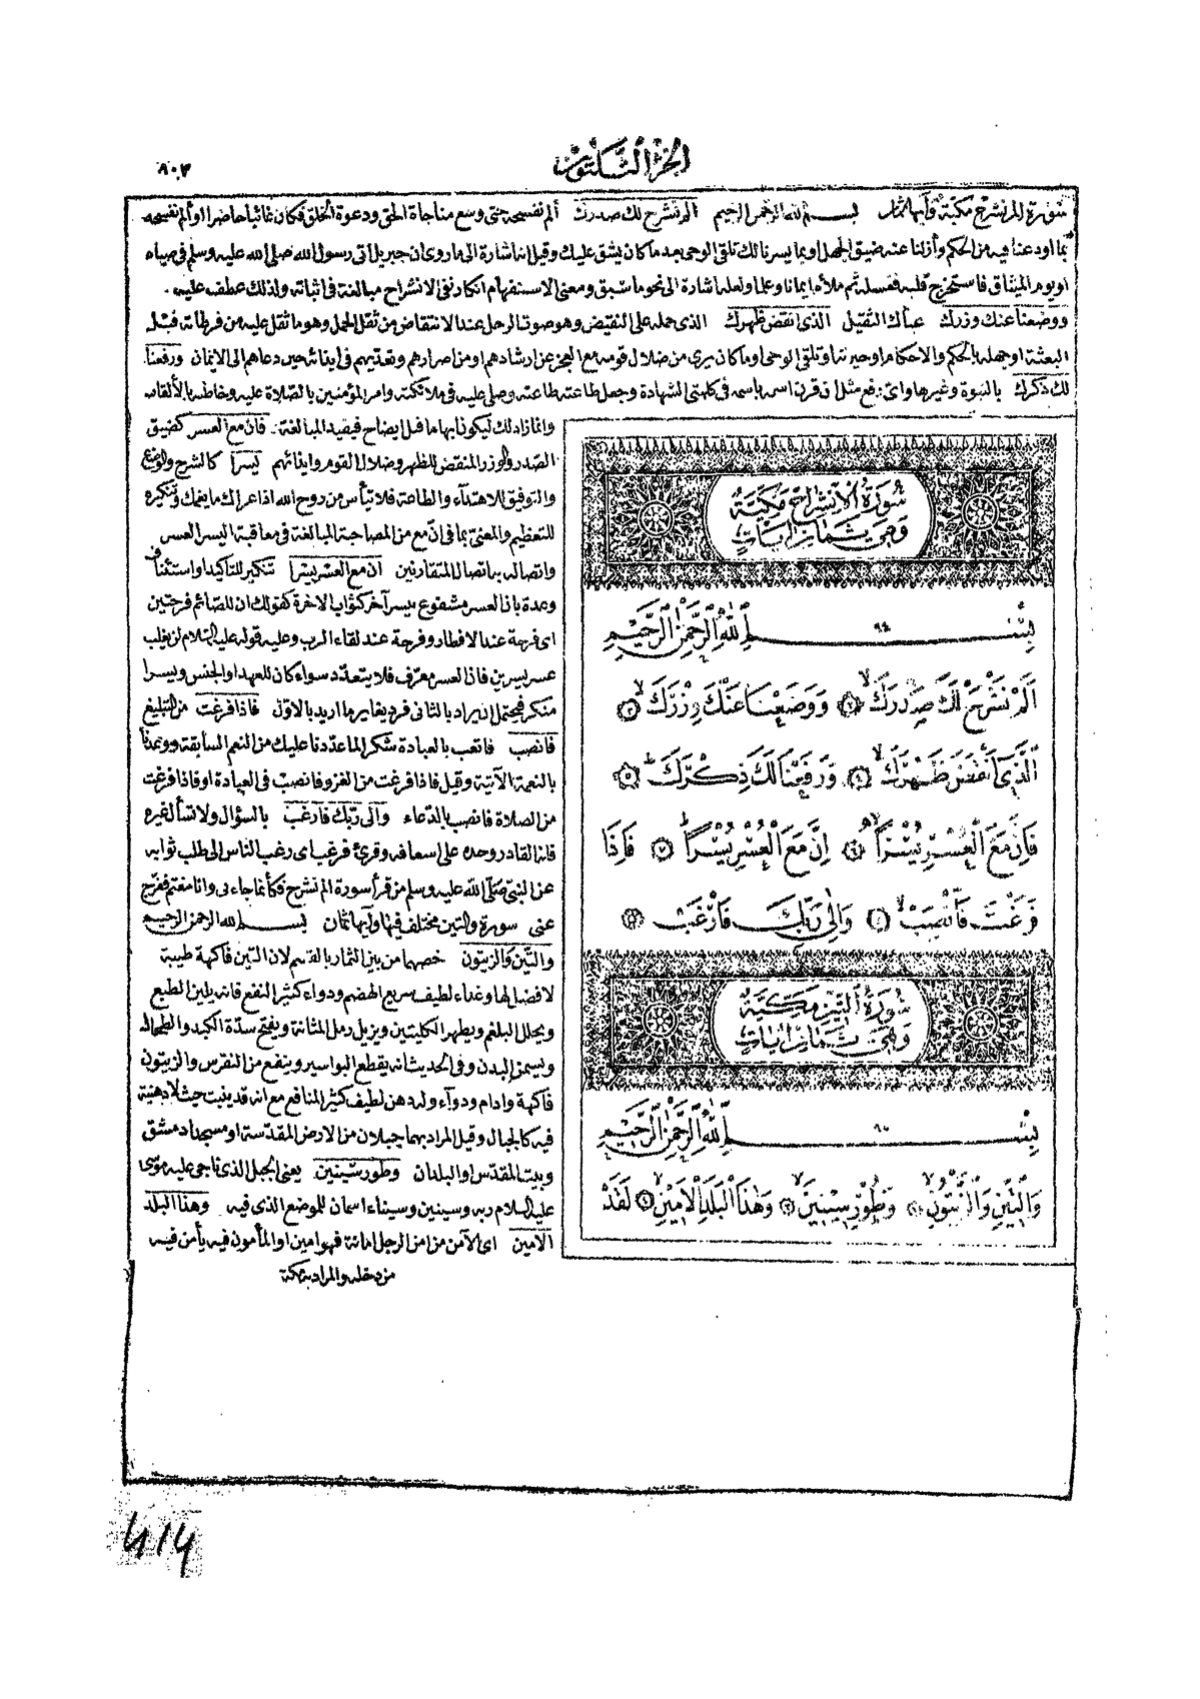 الجزء الثلثون
٨٠٣
سورة الم نشرح مكية وآيها ثمان بسم الله الرحمن الرحيم الم نشرح لك صدرك ألم نفسحه حتى وسع مناجاة الحق ودعوة الخلق فكان غائبا حاضرا او ألم نفسحه
بما اودعنا فيه من الحكم وأزلنا عنه ضيق الجهل او بما يسرنا لك تلقى الوحى بعد ما كان يشق عليك وقيل انه اشارة الى ما روى ان جبريل اتى رسول الله صلى الله عليه وسلم فى صباه
او يوم الميثاق فاستخرج قلبه فغسله ثم ملأه ايمانا وعلما ولعله اشارة الى نحو ما سبق ومعنى الاستفهام انكار نفى الانشراح مبالغة فى اثباته ولذلك عطف عليه
ووضعنا عنك وزرك عبأك الثقيل الذى انقض ظهرك الذى حمله على النقيض وهو صوت الرحل عند الانتقاض من ثقل الحمل وهو ما ثقل عليه من فرطاته قبل
البعثة او جهله بالحكم والاحكام او حيرته او تلقى الوحى او ما كان يرى من ضلال قومه مع العجز عن ارشادهم او من اصرارهم وتعديهم فى ايذائه حين دعاهم الى الايمان ورفعنا
لك ذكرك بالنبوة وغيرها واى رفع مثل ان قرن اسمه باسمه فى كلمتى الشهادة وجعل طاعته طاعته وصلى عليه فى ملائكته وامر المؤمنين بالصلاة عليه وخاطبه بالألقاب
وانما زاد لك ليكون ابهاما قبل ايضاح فيفيد المبالغة فان مع العسر كضيق
الصدر والوزر المنقض للظهر وضلال القوم وايذائهم يسرا كالشرح والوضع
والتوفيق للاهتداء والطاعة فلا تيأس من روح الله اذا عراك ما يغمك وتنكيره
للتعظيم والمعنى بما فى ان مع من المصاحبة المبالغة فى معاقبة اليسر العسر
واتصاله به اتصال المتقارنين ان مع العسر يسرا تكرير للتأكيد او استئناف
وعدة بان العسر مشفوع بيسر آخر كثواب الاخرة كقولك ان للصائم فرحتين
اى فرحة عند الافطار وفرحة عند لقاء الرب وعليه قوله عليه السلام لن يغلب
عسر يسرين فان العسر معرف فلا يتعدد سواء كان للعهد او الجنس ويسرا
منكر فيحتمل ان يراد بالثانى فرد يغاير ما اريد بالاول فاذا فرغت من التبليغ
فانصب فاتعب بالعبادة شكرا لما عددنا عليك من النعم السابقة ووعدنا
بالنعمة الآتية وقيل فاذا فرغت من الغزو فانصب فى العبادة او فاذا فرغت
من الصلاة فانصب بالدعاء والى ربك فارغب بالسؤال ولا تسأل غيره
فانه القادر وحده على اسعافه وقرئ فرغب اى رغب الناس الى طلب ثوابه
عن النبى صلى الله عليه وسلم من قرأ سورة الم نشرح فكأنما جاءنى وانا مغتم ففرج
عنى سورة والتين مختلف فيها وآيها ثمان بسم الله الرحمن الرحيم
والتين والزيتون خصهما من بين الثمار بالقسم لان التين فاكهة طيبة
لا فضل لها وغذاء لطيف سريع الهضم ودواء كثير النفع فانه يلين الطبع
ويحلل البلغم ويطهر الكليتين ويزيل رمل المثانة ويفتح سدة الكبد والطحال
ويسمن البدن وفى الحديث انه يقطع البواسير وينفع من النقرس والزيتون
فاكهة وادام ودواء وله دهن لطيف كثير المنافع مع انه قد ينبت حيث لا دهنية
فيه كالجبال وقيل المراد بهما جبلان من الارض المقدسة او مسجدا دمشق
وبيت المقدس او البلدان وطور سينين يعنى الجبل الذى ناجى عليه موسى
عليه السلام ربه وسينين وسيناء اسمان للموضع الذى فيه وهذا البلد
الامين اى الآمن من امن الرجل امانة فهو امين او المأمون فيه يأمن فيه
من دخله والمراد به مكة
سورة الانشراح مكية
وهى ثمان ايات
٩٤
بِسْمِ اللّٰهِ الرَّحْمٰنِ الرَّحِيمِ
اَلَمْ نَشْرَحْ لَكَ صَدْرَكَ ۙ ﴿١﴾ وَوَضَعْنَا عَنْكَ وِزْرَكَ ۙ ﴿٢﴾
اَلَّذِى اَنْقَضَ ظَهْرَكَ ۙ ﴿٣﴾ وَرَفَعْنَا لَكَ ذِكْرَكَ ۜ ﴿٤﴾
فَاِنَّ مَعَ الْعُسْرِ يُسْرًا ۙ ﴿٥﴾ اِنَّ مَعَ الْعُسْرِ يُسْرًا ۜ ﴿٦﴾ فَاِذَا
فَرَغْتَ فَانْصَبْ ۙ ﴿٧﴾ وَاِلٰى رَبِّكَ فَارْغَبْ ﴿٨﴾
سورة التين مكية
وهى ثمان ايات
٩٥
بِسْمِ اللّٰهِ الرَّحْمٰنِ الرَّحِيمِ
وَالتِّينِ وَالزَّيْتُونِ ۙ ﴿١﴾ وَطُورِ سِينِينَ ۙ ﴿٢﴾ وَهٰذَا الْبَلَدِ الْاَمِينِ ۙ ﴿٣﴾ لَقَدْ
414